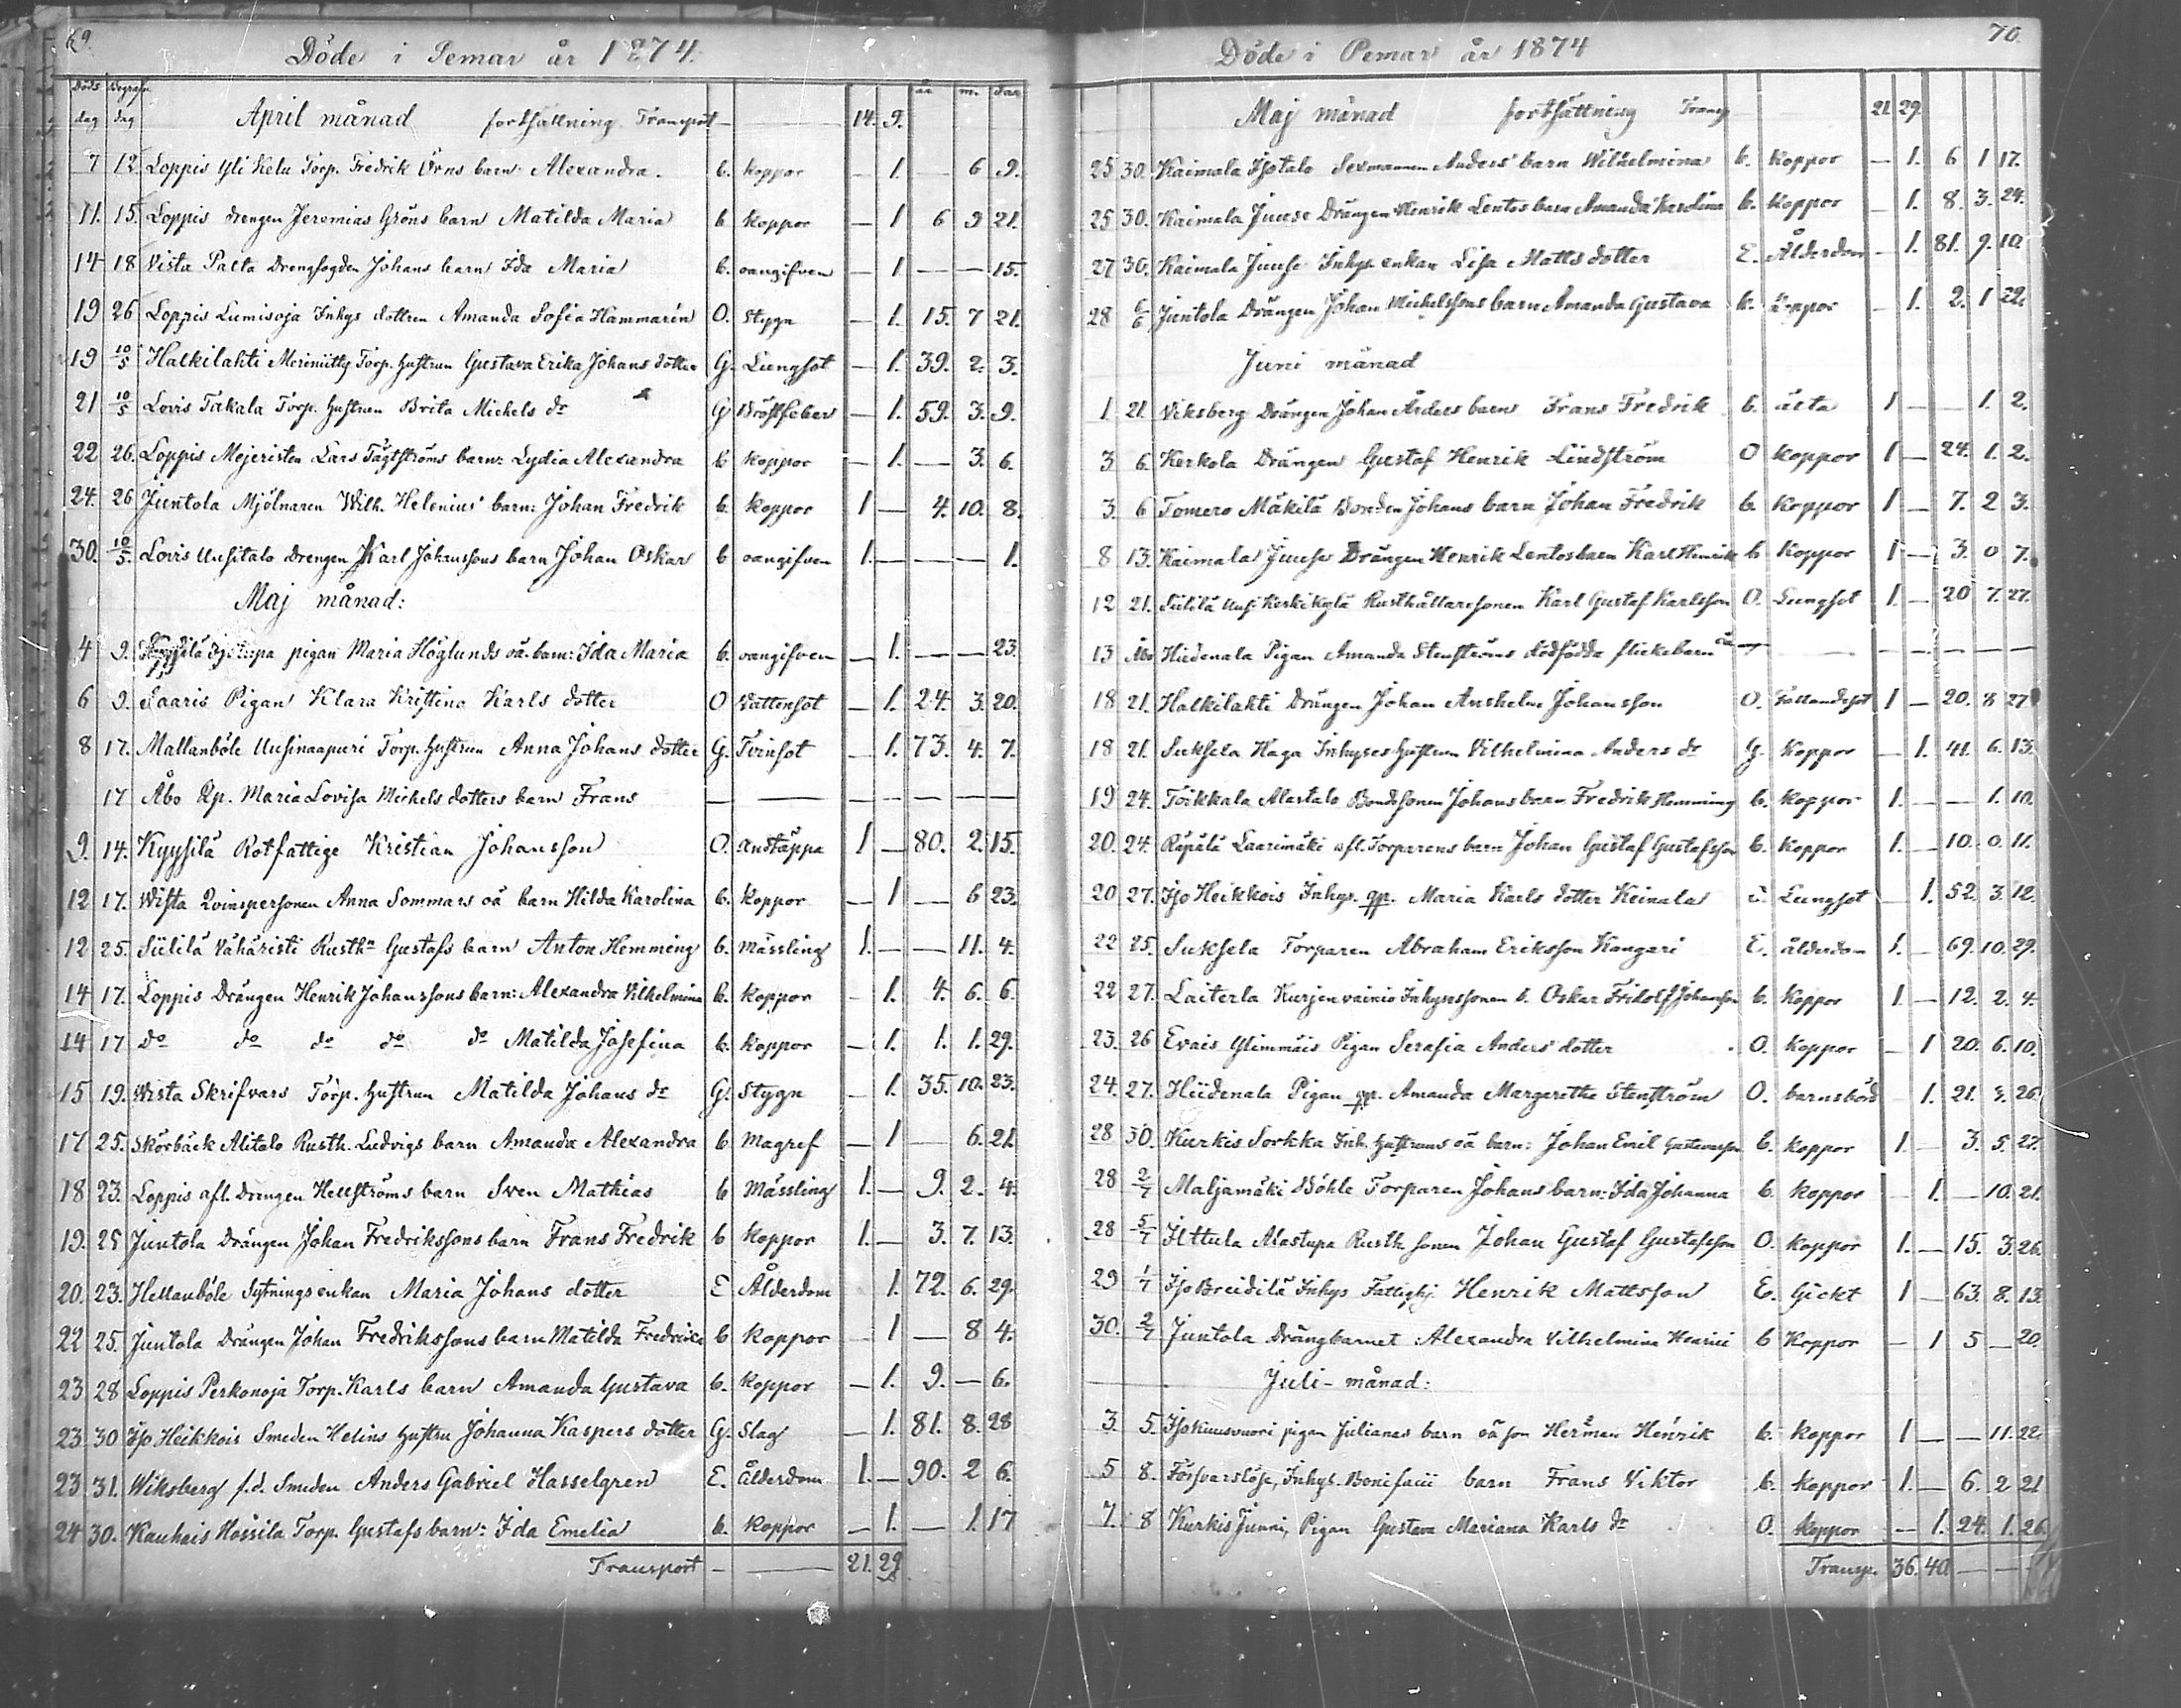 69.
Döde i Pemar år 1874.
Döds dag Begrafn dag år m. dar
April månad fortsättning Transport — 14. 9.
7 12 Loppis Yli Kela Torp. Fredrik Örns barn Alexandra. b. koppor — 1. — 6 9.
11. 15. Loppis drengen Jeremias Gröns barn Matilda Maria b koppor — 1 6 9 21.
14 18 Vista Palta Drengfogden Johans barn Ida Maria b. oangifven — 1 — — 15.
19 26 Loppis Lumisoja Inhys dottren Amanda Sofia Hammarén O. Stygn — 1. 15. 7 21.
19 10/5 Halkilahti Merimitty Torp. hustrun Gustava Erika Johans dotter G. Lungsot — 1. 39. 2. 3.
21 10/5 Lovis Takala Torp. hustrun Brita Michels dr G Bröstfeber — 1. 59. 3. 9.
22 26. Loppis Mejeristen Lars Tägtströms barn: Lydia Alexandra b koppor — 1. — 3. 6.
24. 26 Juntola Mjölnaren Wilh. Helenius' barn: Johan Fredrik b. koppor 1 — 4. 10. 8.
30. 10/5. Lovis Uusitalo Drengen Karl Johanssons barn Johan Oskar b oangifven 1. — — — 1.
Maj månad:
4 9. pigan Maria Höglunds oä. barn: Ida Maria b. oangifven — 1. — — 23.
6 9. Saaris Pigan Klara Kristina Karls dotter O Vattensot — 1. 24. 3. 20.
8 17. Mallanböle Uusinaapuri Torp. hustrun Anna Johans dotter G. Tvinsot — 1. 73. 4. 7.
17 Åbo Qp. Maria Lovisa Michels dotters barn Frans — — — — — — —
9. 14. Kyysilä Rotfattige Kristian Johansson O. andtäppa 1 — 80. 2. 15.
12 17. Wista Qvinspersonen Anna Sommars oä barn Hilda Karolina b. koppor — 1 — 6 23.
12 25. Siililä Vähäristi Rusthn Gustafs barn Anton Hemming b. mässling 1. — — 11. 4.
14 17. Loppis Drängen Henrik Johanssons barn: Alexandra Vilhelmina b. koppor — 1. 4. 6. 6.
14 17 Do do do do do Matilda Josefina b. koppor — 1. 1. 1. 29.
15 19. Wista Skrifvars Torp. hustrun Matilda Johans dr G. Stygn — 1. 35. 10. 23.
17 25. Skörbäck Alitalo Rusth. Ludvigs barn Amanda Alexandra b Magref — 1 — 6. 21.
18 23. Loppis afl. drengen Hellströms barn Sven Mathias b Mässling 1. — 9. 2. 4.
19. 25 Juntola Drängen Johan Fredrikssons barn Frans Fredrik b koppor 1. — 3. 7. 13.
20. 23. Hellanböle Sytningsenkan Maria Johans dotter E Ålderdom 1. 72. 6. 29.
22 25. Juntola Drängen Johan Fredrikssons barn Matilda Fredrika b koppor — 1 — 8 4.
23 28 Loppis Perkonoja Torp. Karls barn Amanda Gustava b. koppor — 1. 9. — 6.
23 30 Iso Heikkois Smeden Helins hustru Johanna Kaspers dotter G. Slag — 1. 81. 8. 28
23 31. Wiksberg f.d. Smeden Anders Gabriel Hasselgren E. ålderdom 1. — 90. 2 6.
24 30. Kauhais Hossila Torp. Gustafs barn: Ida Emelia b. koppor — 1. — 1. 17
Transport — — 21. 29
70.
Döde i Pemar år 1874
Maj månad fortsättning Transp 21 29.
25 30. Kaimala Isotalo Sexmannen Anders' barn Wilhelmina b. koppor — 1. 6 1 17.
25 30. Kaimala Juuse Drängen Henrik Lentos barn Amanda Karolina b. koppor — 1. 8. 3. 24.
27 30. Kaimala Juuse Inhys enkan Lisa Matts dotter E. Ålderdom — 1. 81. 9. 10.
28 6/6 Juntola Drängen Johan Michelssons barn Amanda Gustava b. koppor — 1. 2. 1 22.
Juni månad
1. 21. Viksberg Drängen Johan Ärders barn Frans Fredrik b. älta 1 — — 1. 2.
3 6. Kerkola Drängen Gustaf Henrik Lindström O koppor 1 — 24. 1. 2.
3. 6 Tomero Mäkilä Bonden Johans barn Johan Fredrik b. koppor 1 — 7. 2 3.
8 13. Kaimala Juuse Drängen Henrik Lentos barn Karl Henrik b koppor 1 — 3. 0 7.
12 21. Siililä Uusi Keskikylä Rusthållaresonen Karl Gustaf Karlsson O. Lungsot 1. — 20 7. 27.
13 Åbo Hiidenala Pigan Amanda Stenströms dödfödda flickebarn — — — — — —
18 21. Halkilahti Drängen Johan Anshelm Johansson O. Fallandesot 1 — 20. 8 27
18 21. Suksela Haga Inhyses hustrun Vilhelmina Anders dr G. koppor — 1. 41. 6. 13.
19 24. Toikkala Alastalo Bondsonen Johans barn Fredrik Hemming b. koppor 1. — — 1. 10.
20. 24. Räpälä Laarimäki afl. Torparens barn Johan Gustaf Gustafsson b. koppor 1. — 10. 0. 11.
20 27. Iso Heikkois Inhys. qp. Maria Karls dotter Keinala Lungsot 1. 52. 3. 12.
22 25. Suksela Torparen Abraham Eriksson Kangari E. ålderdom 1. — 69. 10. 29.
22 27. Laiterla Kurjenvainio Inhysessonen b. Oskar Fridolf Johansson b. koppor 1. — 12. 2. 4.
23. 26 Evais Ylimmäis Pigan Serafia Anders dotter O. koppor — 1 20. 6. 10.
24. 27. Hiidenala Pigan qp. Amanda Margaretha Stenström O. barnsbörd 1. 21. 3. 26.
28 30. Kurkis Sorkka Inh. hustruns oä barn: Johan Emil Gustavsson b. koppor 1. — 3. 5. 27.
28 2/7 Maljamäki Böhle Torparen Johans barn: Ida Johanna b. koppor — 1. — 10. 21.
28 5/7 Ittula Alastupa Rusth. sonen Johan Gustaf Gustafsson O. koppor 1. — 15. 3. 26.
29 1/7 Iso Breidilä Inhys Fattighj. Henrik Mattsson E. Gickt 1 — 63. 8. 13.
30. 2/7 Juntola Drängbarnet Alexandra Vilhelmina b koppor — 1 5 — 20.
Juli månad:
3. 5. Isokuusvuori pigan Julianas barn oä son Herman Henrik b. koppor 1 — — 11. 22.
5 8. Försvarslöse, Inhys. Bonifacii barn Frans Viktor b. koppor 1. — 6. 2 21
7. 8 Kurkis Junni, Pigan Gustava Mariana Karls dr O. koppor — 1. 24. 1. 26.
Transp. 36. 40 — — —